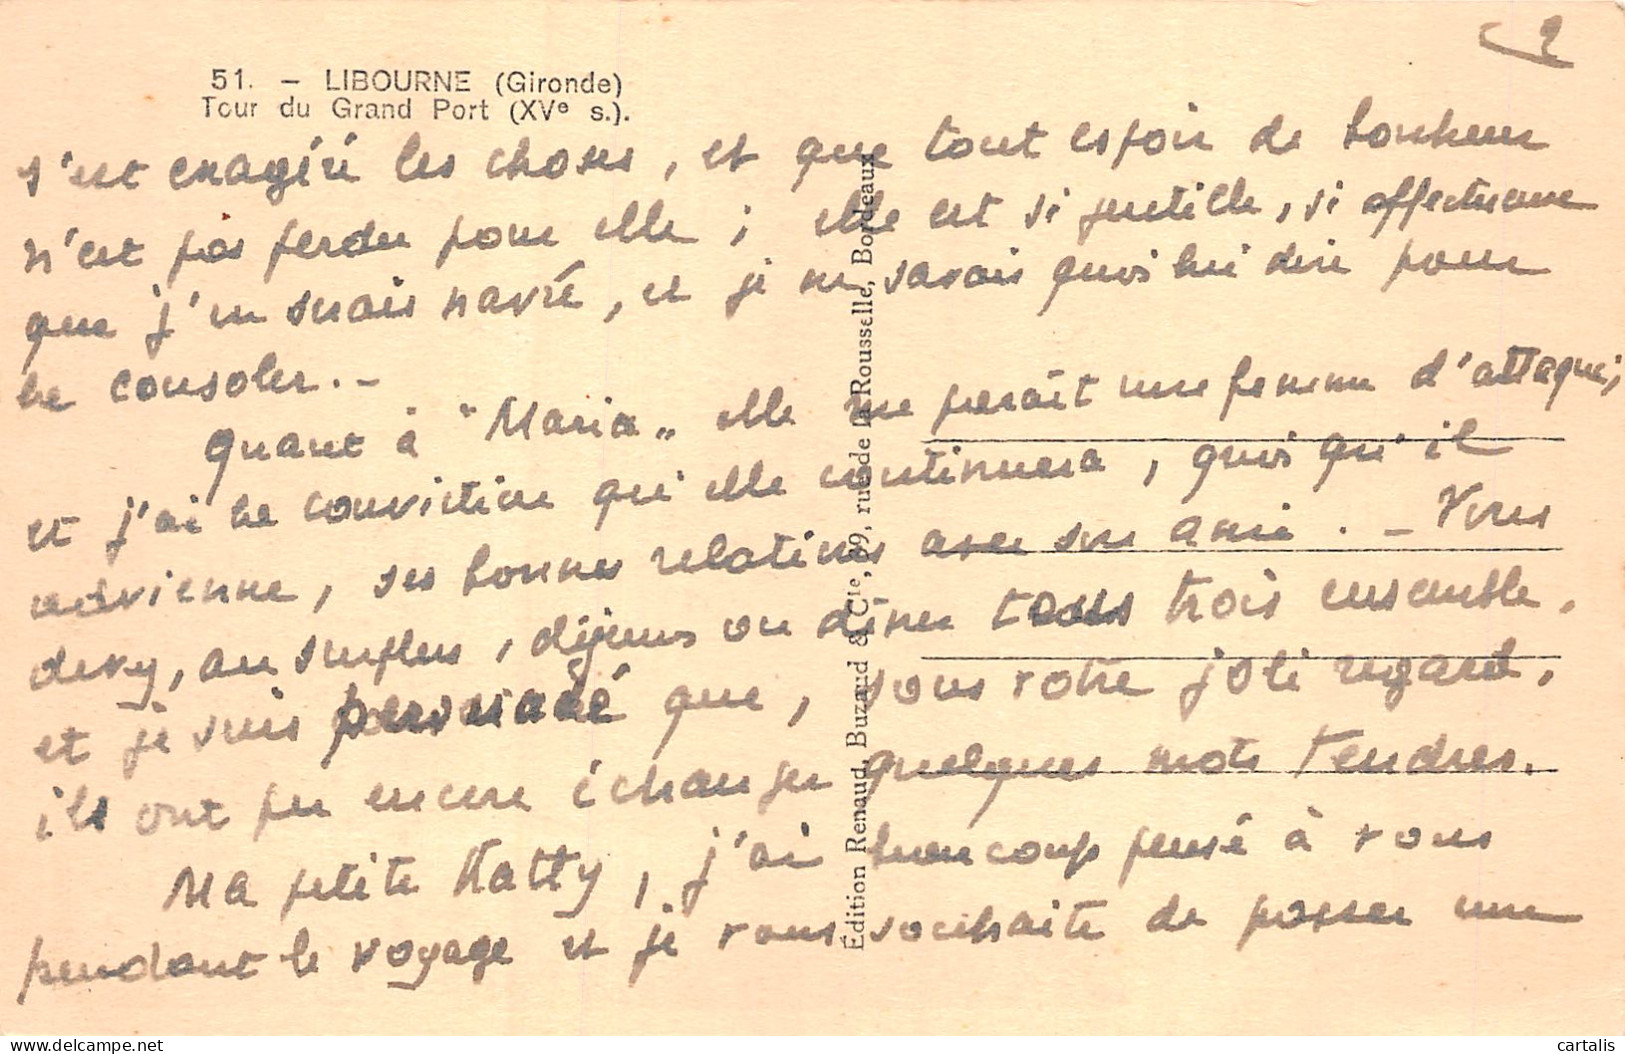 2
51. — LIBOURNE (Gironde)
Tour du Grand Port (XVe s.).
s'est exagéré les choses, et que tout espoir de bonheur
n'est pas perdu pour elle ; elle est si gentille, si affectueuse
que j'en suis navré, et je ne savais quoi lui dire pour
la consoler. –
Quant à "Maria" elle me paraît une femme d'attaque,
et j'ai la conviction qu'elle continuera, quoi qu'il
advienne, ses bonnes relations avec son ami. – Vous
devez, au surplus, déjeuner ou dîner tous trois ensemble,
et je suis persuadé que, sous votre joli regard,
ils ont pu encore échanger quelques mots tendres.
Ma petite Katty, j'ai beaucoup pensé à vous
pendant le voyage et je vous souhaite de passer une
Édition Renaud, Buzaud & Cie, 39, rue de la Rousselle, Bordeaux
cartalis